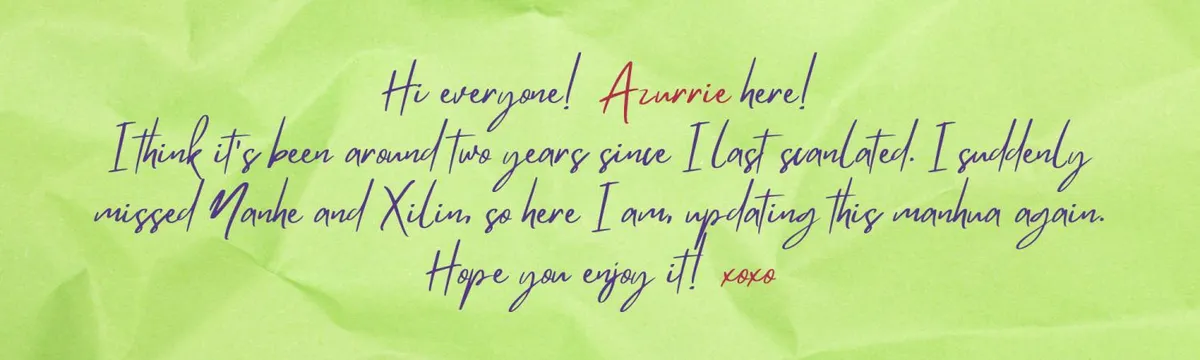 Hi everyone! Azurrie here!
I think it's been around two years since I last scanlated. I suddenly
missed Nanhe and Xilin, so here I am, updating this manhua again.
Hope you enjoy it! xoxo